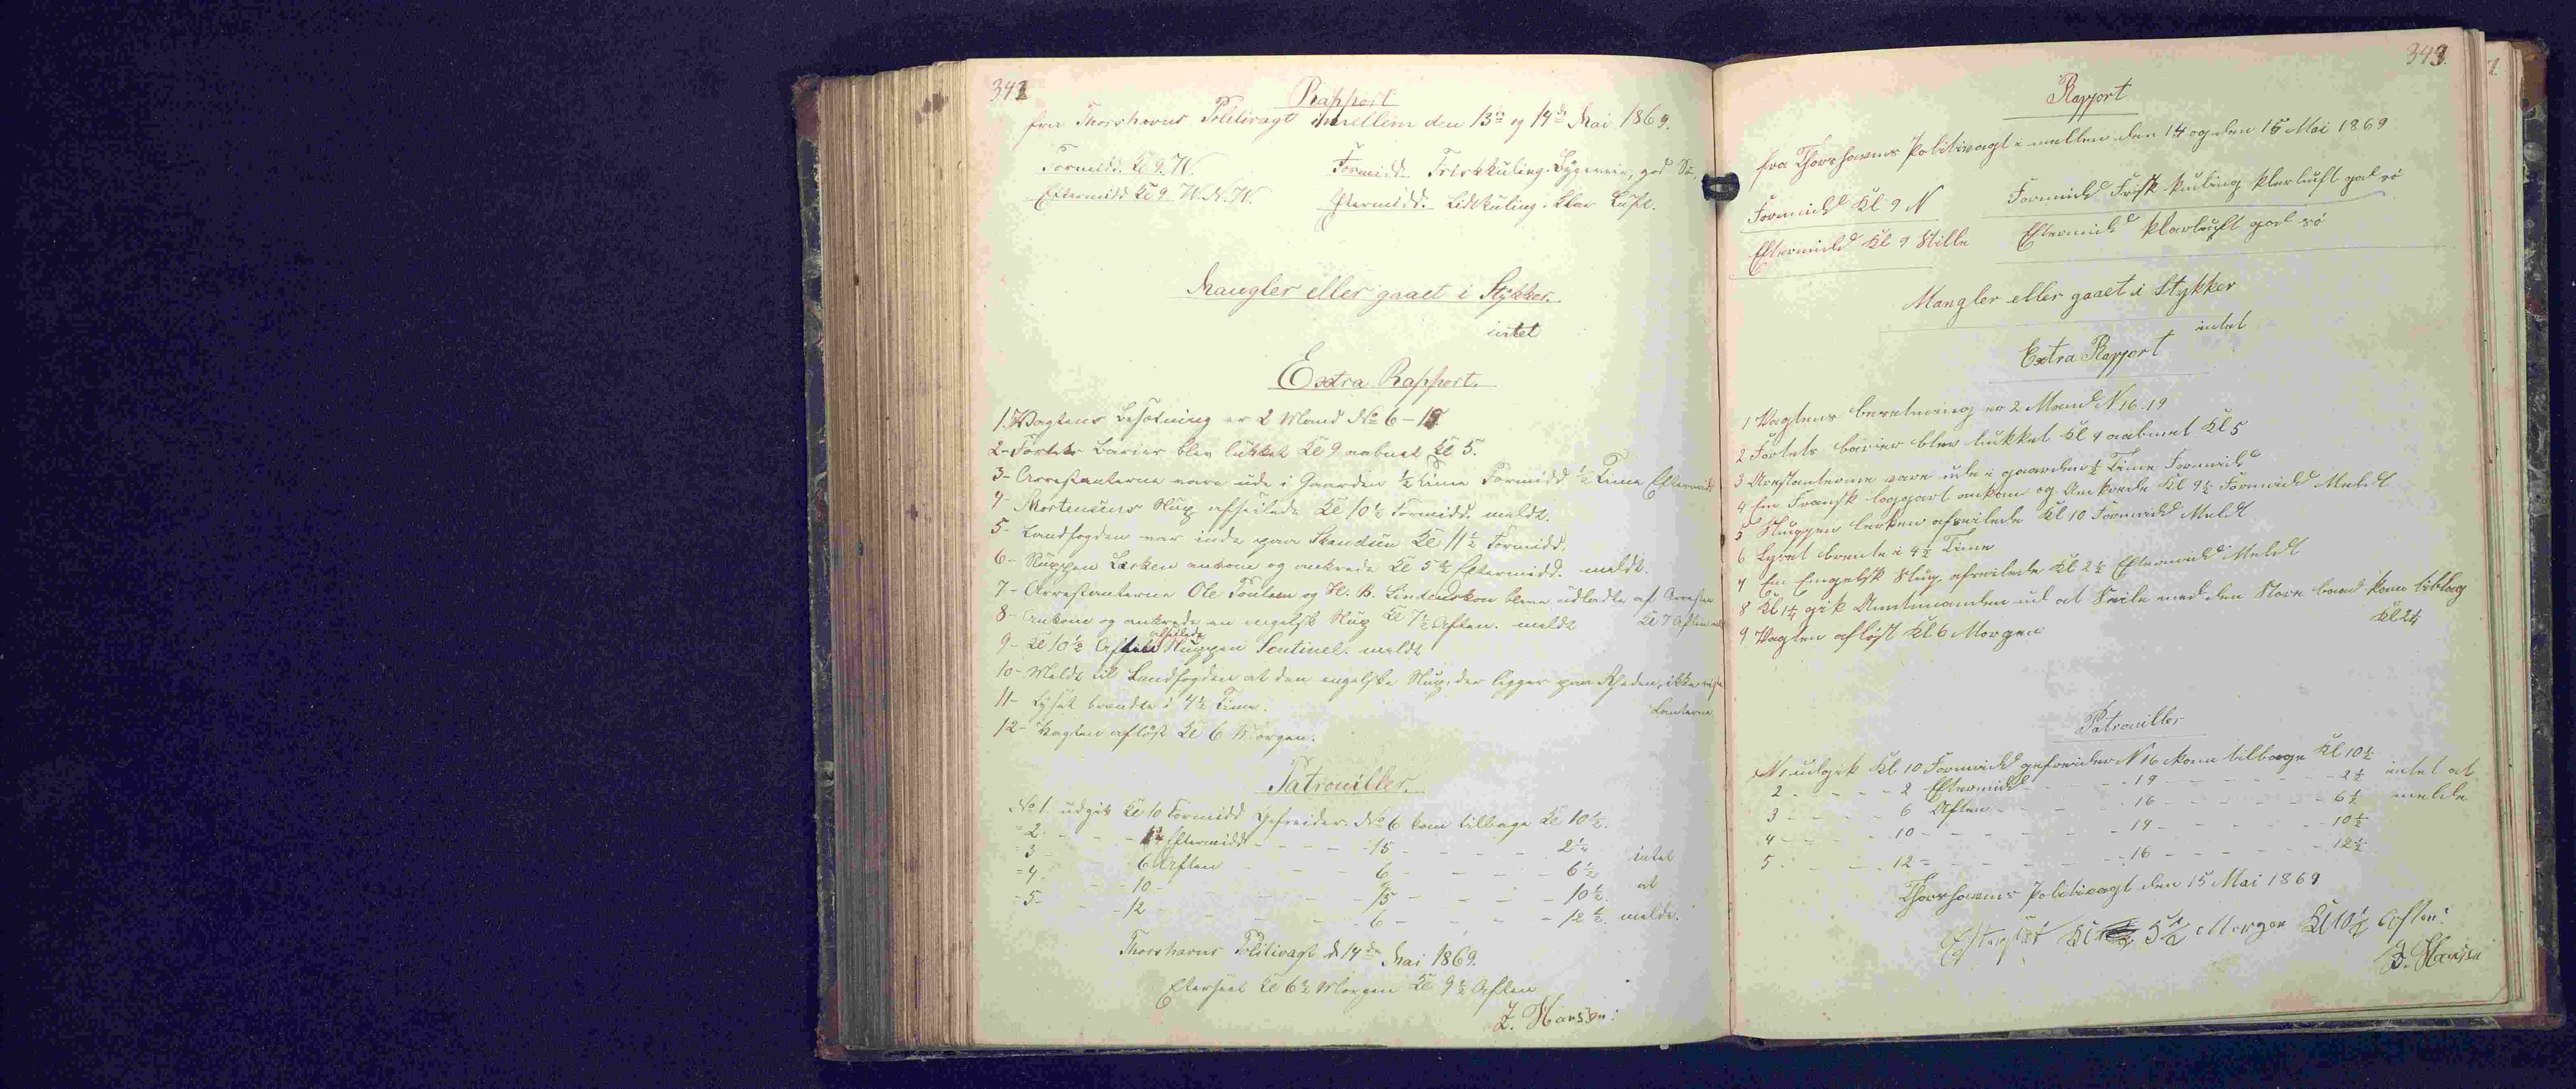 342
Rapport
fra Thorshavns Politivagt imellem den 13de og 14de Mai 1869.
Formidd. Kl 9. W.
Formidd. Friskkuling. Bygeveir, god Sø.
Eftermidd Kl 9 W.N.W.
Eftermidd. Lidt Kuling. Klar Luft.
Mangler eller gaaet i Stykker.
intet
Extra Rapport.
1. Vagtens Besætning er 2 Mand No 6 - 15.
2- Fortets Barier blev lukket Kl 9 aabnet Kl 5.
3- Arrestanterne vare ude i Gaarden ½ Time Formidd ½ Time Eftermidd
4- Mortensens Slup afseilede Kl 10½ Formidd. meldt.
5- Landfogden var inde paa Skandsen Kl 11½ Formidd.
6- Sluppen Lærken ankom og ankrede Kl 5½ Eftermidd. meldt.
7- Arrestanterne Ole Joensen og H. B. bleve udladte af Arresten
Kl 7 Aften
8- Ankom og ankrede en engelsk Slup Kl 7½ Aften. meldt
9- Kl 10½ Aften afseilede Sluppen Sentinel. meldt
10- Meldt til Landfogden at den engelske Slup, der ligger paa Rheden, ikke
Lanterne
11- Lyset brændte i 4½ Time.
12- Vagten afløst Kl 6 Morgen.
Patrouiller.
No 1. udgik Kl 10 Formidd Gefreider. No 6 kom tilbage Kl 10½.
- 2 - - - Eftermidd - - - 15 - - - 2¼
- 3 - - - 6 Aften - - - 6 - - - 6½ intet
- 4 - - - 10 - - - 15 - - - 10½. at
- 5 - - - 12 - - - 6 - - - 12½. melde.
Thorshavns Politivagt d 14de Mai 1869.
Efterseet Kl 6½ Morgen Kl 9½ Aften
Z. Hansen.
343.
Rapport
fra Thorshavns Politivagt i mellem den 14 og den 15 Mai 1869
Formidd Kl 9 N
Formidd Frisk kuling klarluft god sø
Eftermidd Kl 9 Stille
Eftermidd klarluft god sø
Mangler eller gaaet i Stykker
intet
Extra Rapport
1 Vagtens besetning er 2 Mand N 16. 19
2 Fortets barier blev lukket Kl 9 aabnet Kl 5
3 Arestanterne vare ude i gaarden ½ Time Formidd
4 En Fransk loggart ankom og Ankrede Kl 9½ Formidd Meldt
5 Sluppen lerken afseilede Kl 10 Formidd Meldt
6 Lyset brente i 4½ Time
7 En Engelsk Slup afseilede Kl 2½ Eftermidd Meldt
8 Kl 1¼ gik Amtmanden ud at Seile med den Store baad kom tilbag
Kl 2¼
9 Vagten afløst Kl 6 Morgen
Patrouiller
N 1 udgik Kl 10 Formidd gefreider N 16 kom tilbage Kl 10½
2 - - - 2 Eftermidd - - - 19 - - - 2½ intet at
3 - - - 6 Aften - - - 16 - - - 6½ melde
4 - - - 10 - - - 19 - - - 10½
5 - - - 12 - - - 16 - - - 12½
Thorshavns Politivagt den 15 Mai 1869
Efterseet Kl 5½ Morgen Kl 10½ Aften.
Z. Hansen